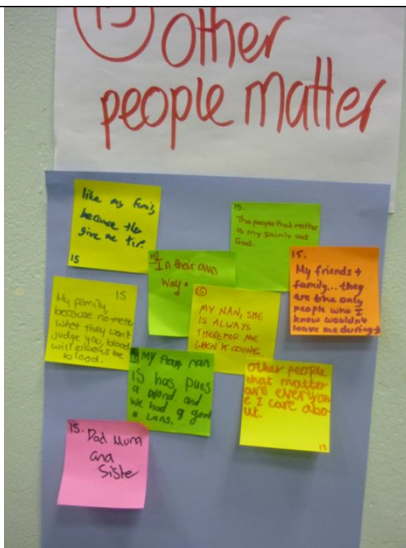 15 Other
people matter
like my family
because they
give me
15
15.
The people that matter
is my saints and
God.
15
In their own
way.
15.
My friends +
family... they
are the only
people who I
know wouldnt
leave me during
15
My family
because no mater
what they won't
judge you, blood
will always be
blood.
15
MY NAN, SHE
IS ALWAYS
THERE FOR ME
WHEN IT COUNTS
MY nan
15 has
a and
we had a good
other people
that matter
are everyon
e I care abo
ut.
15
15. Dad Mum
and
Sister